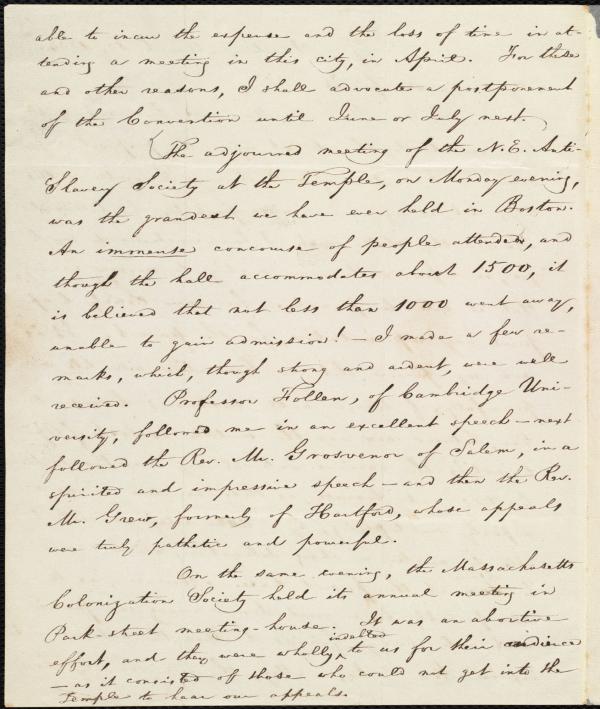 able to incur the expense and the loss of time in at-
tending a meeting in this city, in April. For these
and other reasons, I shall advocate a postponement
of the Convention until June or July next.
The adjourned meeting of the N.E. Anti-
Slavery Society at the Temple, on Monday evening,
was the grandest we have ever held in Boston.
An immense concourse of people attended, and
though the hall accommodates about 1500, it
is believed that not less than 1000 went away,
unable to gain admission! — I made a few re-
marks, which, though strong and ardent, were well
received. Professor Follen, of Cambridge Uni-
versity, followed me in an excellent speech — next
followed the Rev. Mr. Grosvenor of Salem, in a
spirited and impressive speech — and then the Rev.
Mr. Grew, formerly of Hartford, whose appeals
were truly pathetic and powerful.
On the same evening, the Massachusetts
Colonization Society held its annual meeting in
Park-street meeting-house. It was an abortive
effort, and they were wholly indebted to us for their audience
— as it consisted of those who could not get into the
Temple to hear our appeals.